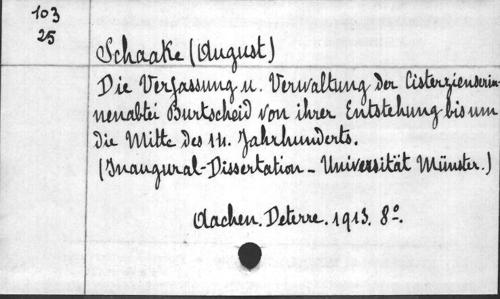 103
25
Schaake (August)
Die Verfassung u. Verwaltung der Cisterzienserin-
nenabtei Burtscheid von ihrer Entstehung bis um
die Mitte des 14. Jahrhunderts.
(Inaugural-Dissertation - Universität Münster.)
Aachen. Deterre. 1913. 8º.